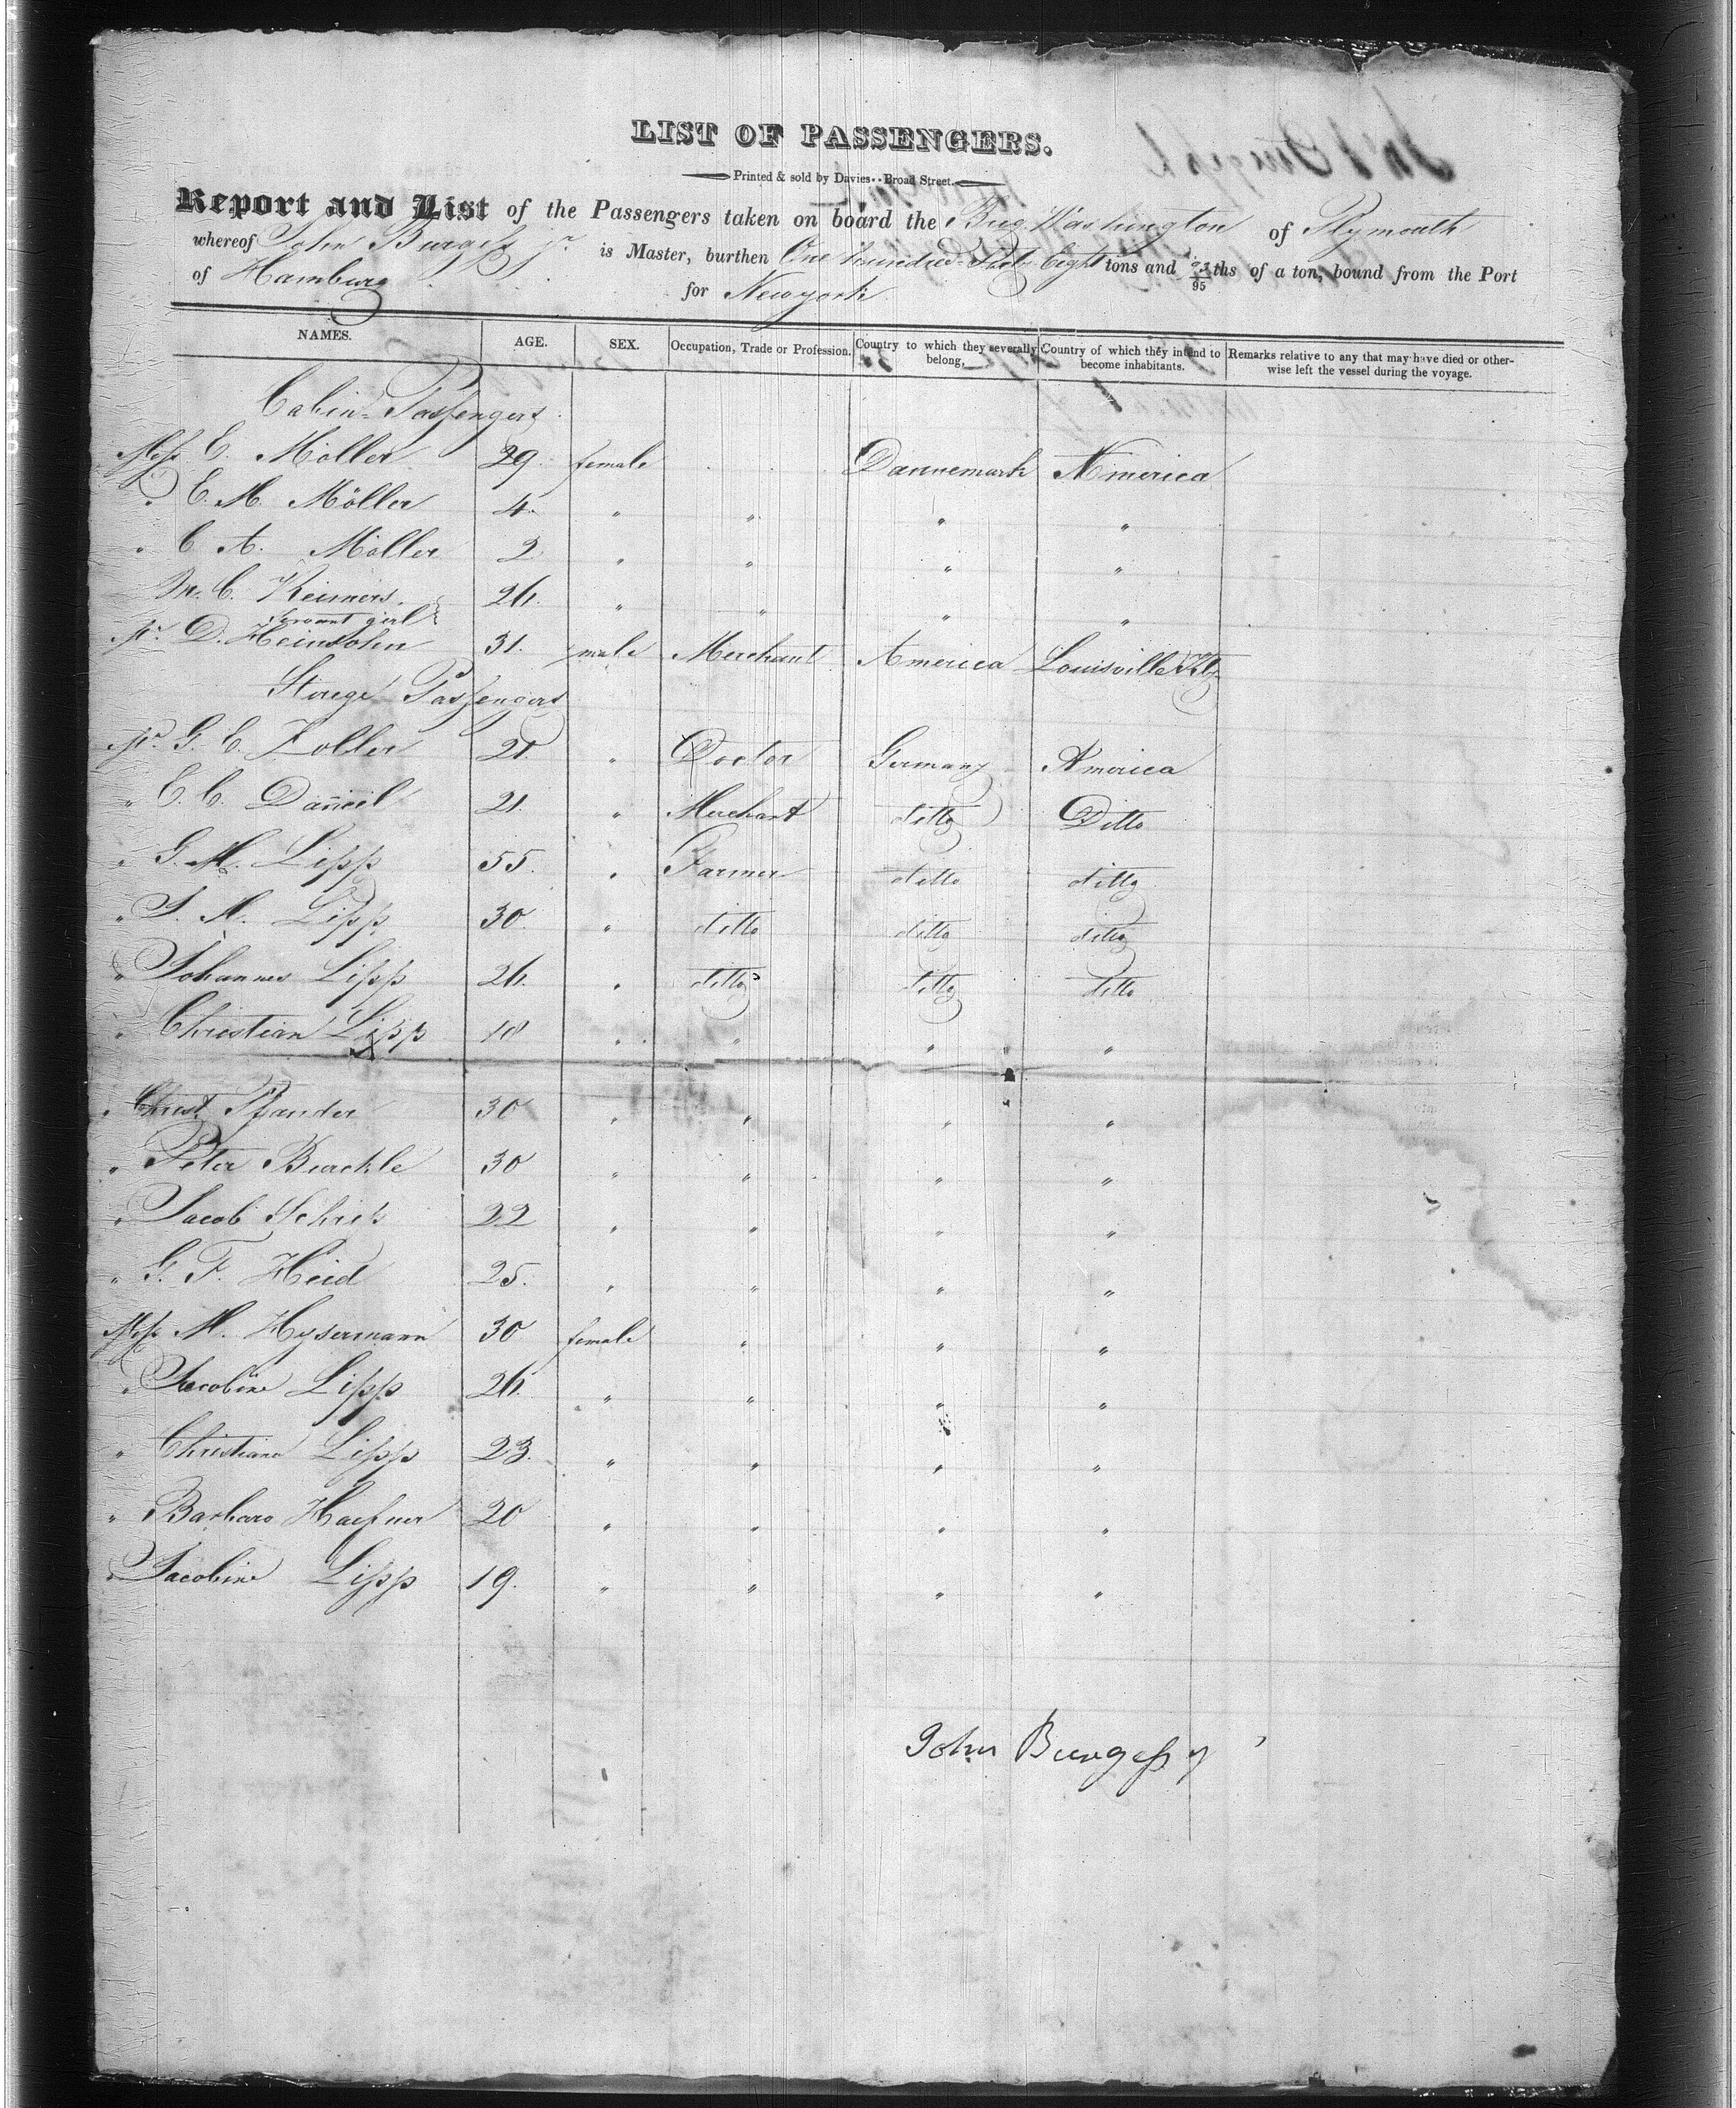 LIST OF PASSENGERS.
Printed & sold by Davies--Broad Street.
Report and List of the Passengers taken on board the Brig Washington of Plymouth
whereof John Burgess jr. is Master, burthen One hundred Sixty Eight tons and 93/95 ths of a ton, bound from the Port
of Hamburg for Newyork
NAMES. AGE. SEX. Occupation, Trade or Profession. Country to which they severally belong, Country of which they intend to become inhabitants. Remarks relative to any that may have died or otherwise left the vessel during the voyage.
Cabin-Passengers
E. Möller 29. female Dannemark America
" E. M. Möller 4. " " " "
" C. A. Möller 2 " " " "
M. C. Reimers. 26. " " " "
Servant girl
Mr. D. Heinsohn 31. male Merchant America Louisville Kty
Sterege Passengers
Mr. G. E. Zoller 21. " Doctor Germany America
" E. C. Dañeel 21. " Merchant ditto Ditto
" G. M. Lipp 55. " Farmer ditto ditto
" J. M. Lipp 30. " ditto ditto ditto
" Johannes Lipp 26. " ditto ditto ditto
" Christian Lipp 18 " " " "
" Christ. Pfander 30 " " " "
" Peter Buackle 30 " " " "
" Jacob Schick 22 " " " "
" G. F. Heid 25. " " " "
M. Hysermann 30 female " " "
" Jacobine Lipp 26. " " " "
" Christiane Lipp 23. " " " "
" Barbara Haefner 20 " " " "
" Jacobine Lipp 19. " " " "
John Burgess jr